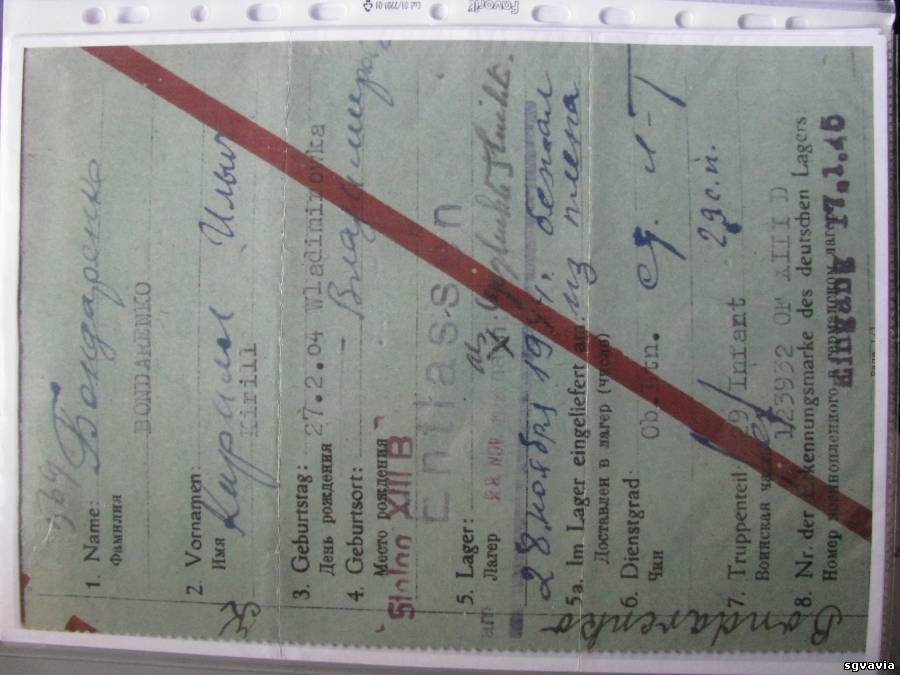 Favorit
Бондаренко
1. Name:
Фамилия
BONDARENKO
2. Vornamen:
Имя
Кирилл Ильич
Kirill
3. Geburtstag: 27.2.04 Wladimirowka
День рождения
4. Geburtsort: - Владимиро
Место рождения
Stalag XIII B
Entlassen
5. Lager:
Лагер
28 NOV
28 ноября 1944. бежал
из плена
5a. Im Lager eingeliefert am
Доставлен в лагер (число)
6. Dienstgrad: Ob.Ltn.
Чин
7. Truppenteil 29 Infant
Воинская часть
29 с.п.
123932 OF XIII D
8. Nr. der Erkennungsmarke des deutschen Lagers:
Номер военнопленного германском лагере
Eingang 17.1.45
Bondarenko
sgvavia